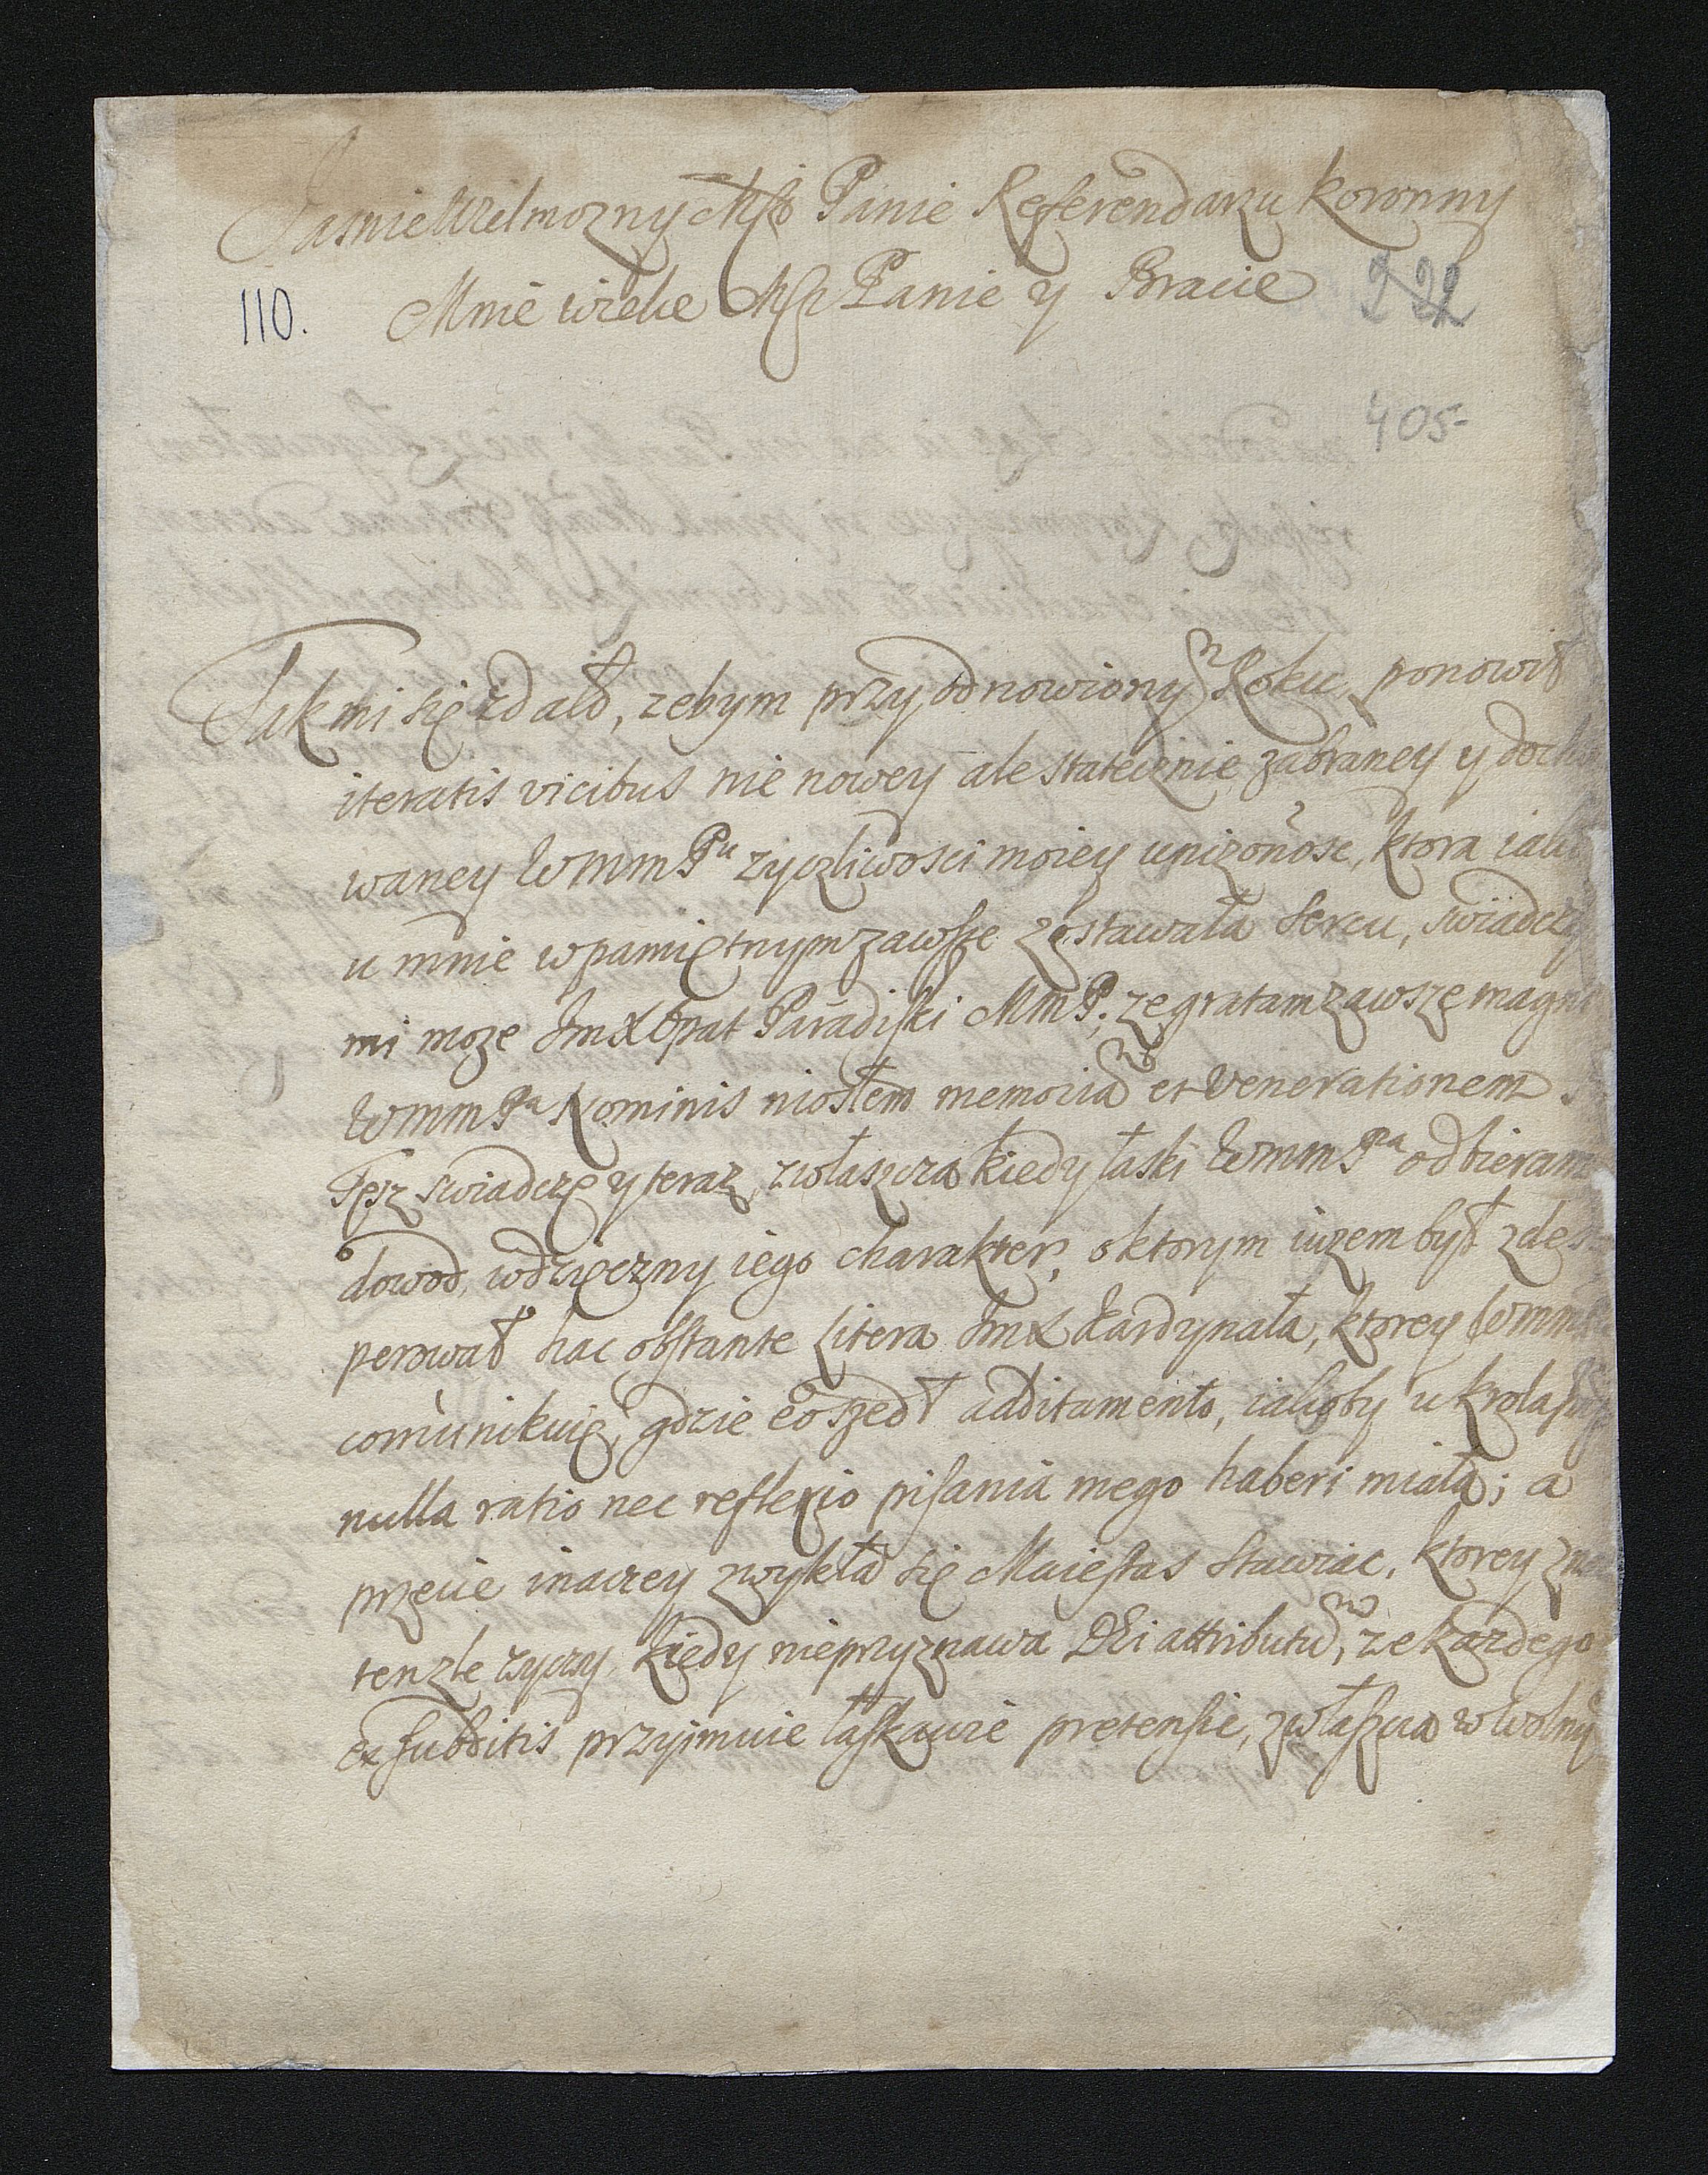 Jasnie Wielmozny Mśċ Panie Referendarzu Koronny
110. Mnie wielce Mśċ Panie y Bracie 222
405-
Tak mi się zdało, zebym przy odnowiony Roku, ponowił
iteratis vicibus nie nowey ale statecznie zabraney y docho
waney WMMPu zyczliwosci moiey unizonosc, ktora iako
u mnie w pamiętnym zawsze zostawała sercu, swiadczy
mi moze Jmx Opat Paradiski MMP, ze gratam zawsze magni
WMMPa Nominis niosłem memoria et Venerationem
Tęsz swiadczę y teraz, zwłaszcza kiedy łaski WMMPa odbieram
dowod, wdzięczny iego charakter, o ktorym iuzem był zdes
perował hac obstante litera Jmx Kardynała, ktorey WMM
comunikuię, gdzie doszedł additamento, iakoby u krola
nulla ratio nec reflexio pisania mego haberi miała; a
przecie inaczey zwykła się Maiestas stawiac, ktorey
ten zle zyczy, kiedy nieprzyznawa DEi attributu, ze kazdego
ex subditis przyimuie łaskawie pretensie, zwłaszcza w wolny